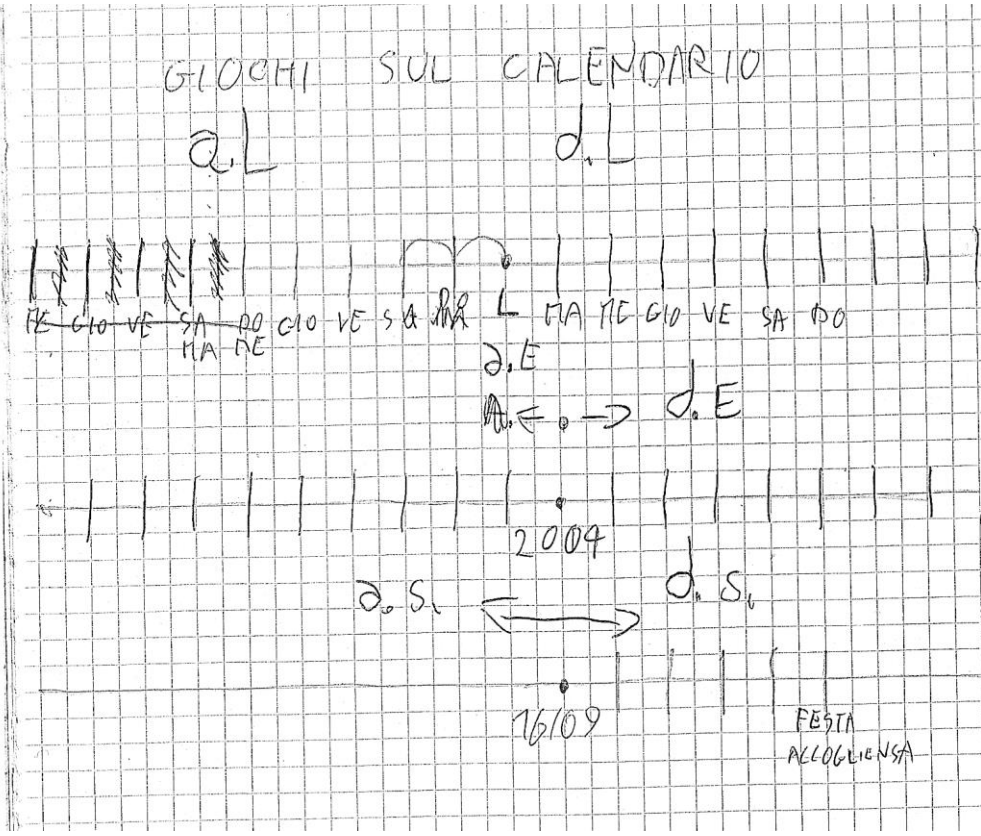 GIOCHI SUL CALENDARIO
a.L d.L
ME GIO VE SA DO GIO VE SA L MA ME GIO VE SA DO
MA ME
a.E
← . → d.E
2004
a.S. d.S.
16/09
FESTA
ACCOGLIENSA